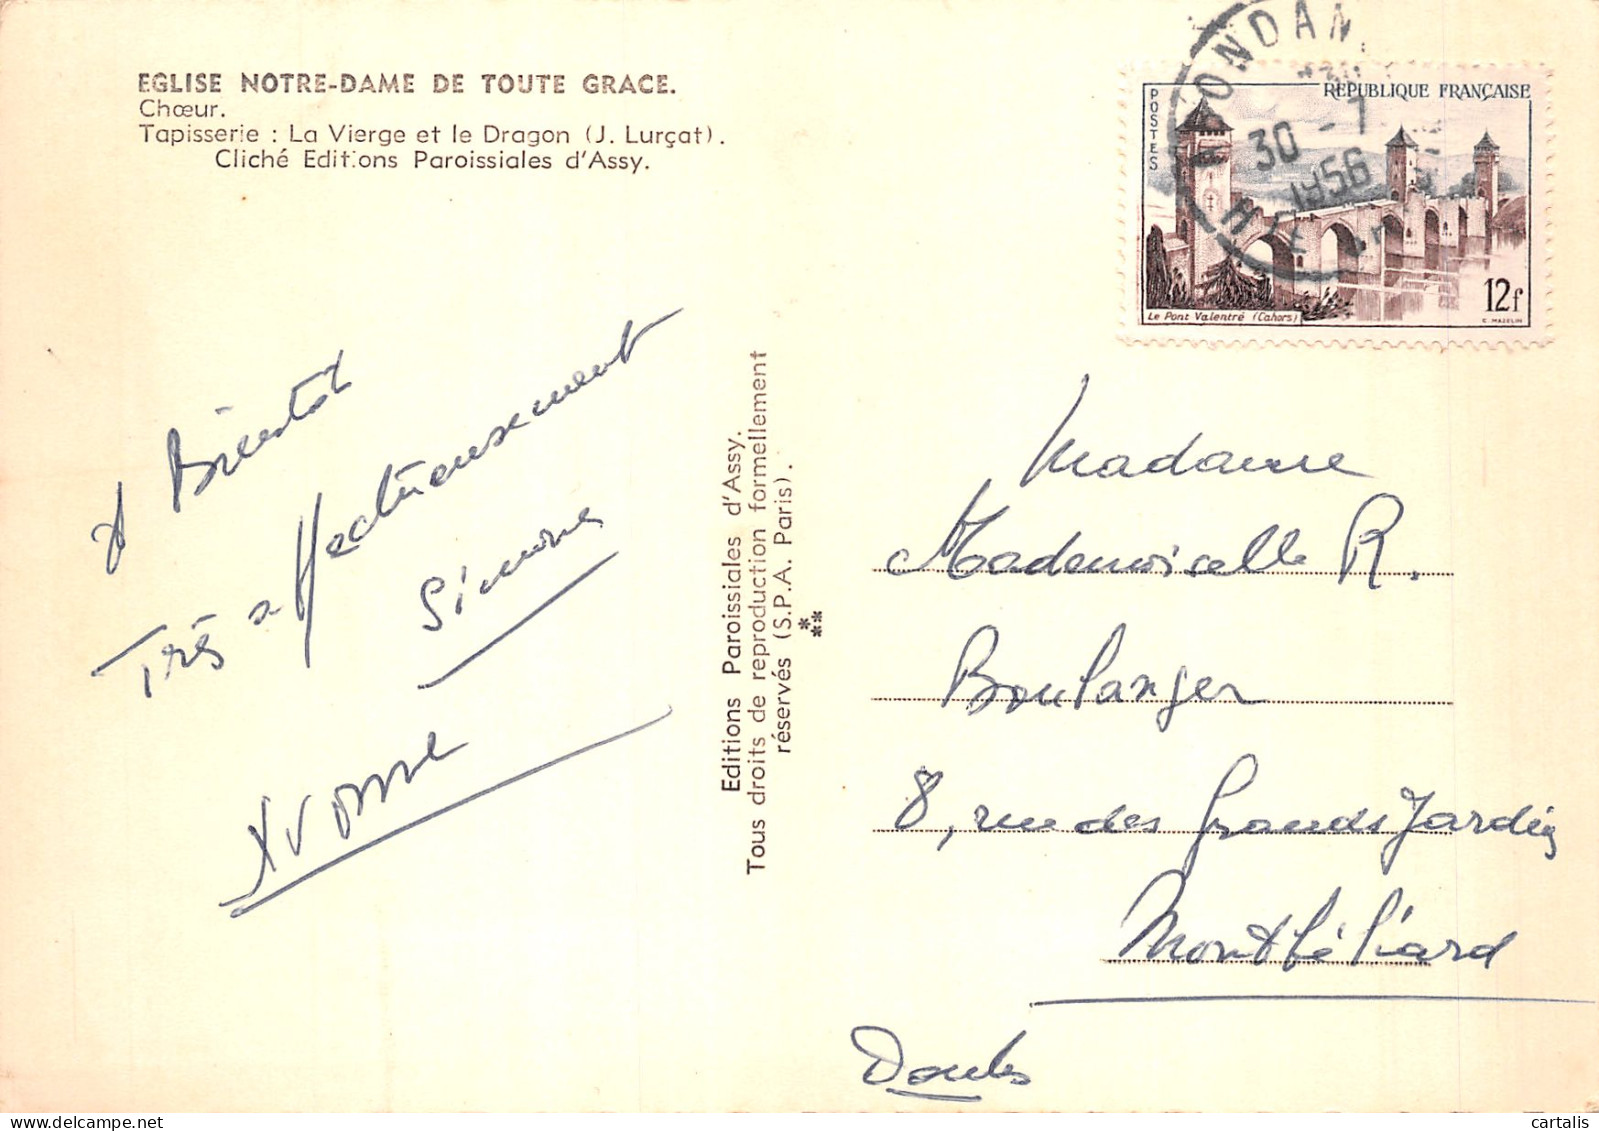 EGLISE NOTRE-DAME DE TOUTE GRACE.
Chœur.
Tapisserie : La Vierge et le Dragon (J. Lurçat).
Cliché Editions Paroissiales d'Assy.
A Bientôt
Très affectueusement
Simone
Yvonne
Editions Paroissiales d'Assy.
Tous droits de reproduction formellement
réservés (S.P.A. Paris).
POSTES
REPUBLIQUE FRANÇAISE
30 -7
1956
Hte
Le Pont Valentré (Cahors)
12f
C. MAZELIN
Madame
Mademoiselle R.
Boulanger
8, rue des Grands Jardins
Montbéliard
Doubs
cartalis